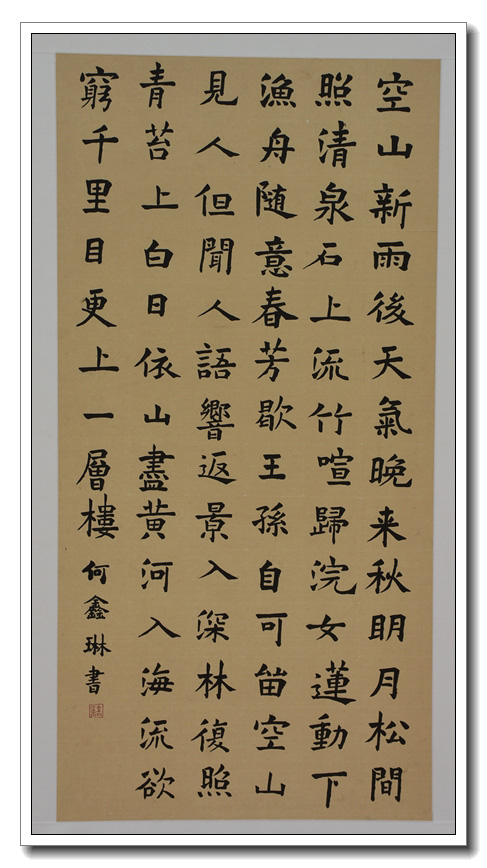 空山新雨後天氣晚来秋眀月松間
照清泉石上流竹喧歸浣女蓮動下
漁舟随意春芳歇王孫自可留空山
見人但聞人語響返景入深林復照
青苔上白日依山盡黄河入海流欲
窮千里目更上一層樓何鑫琳書